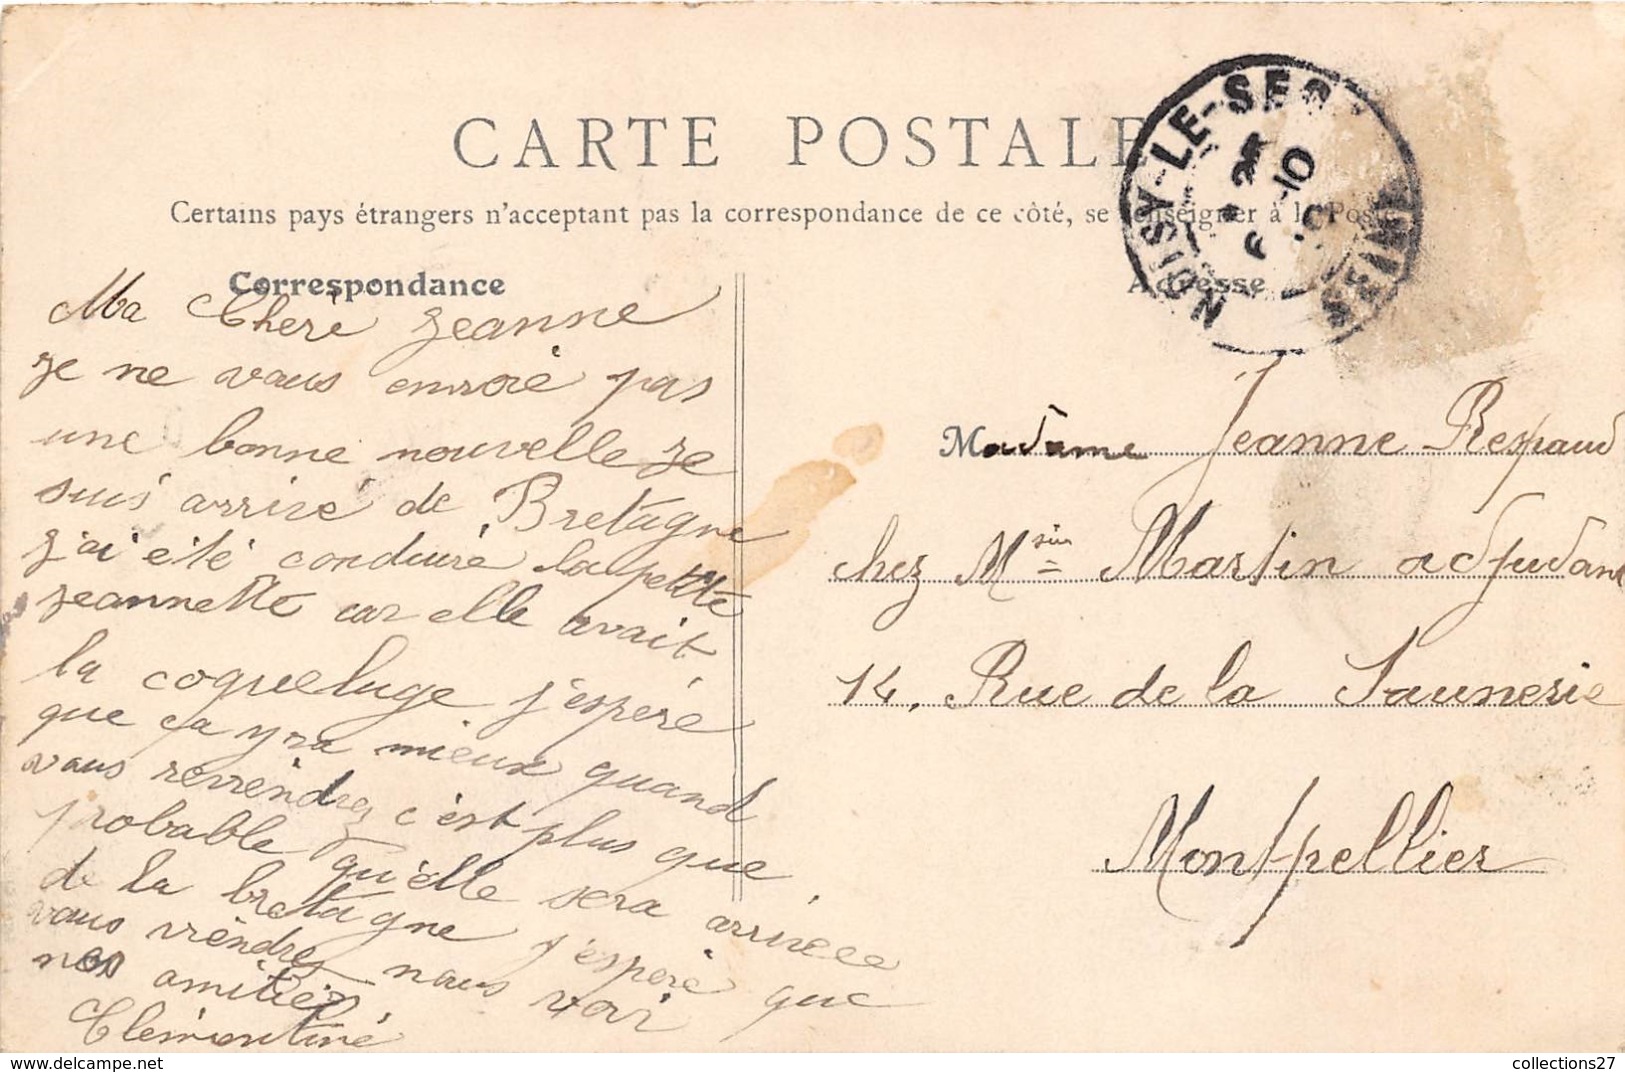 CARTE POSTALE
Certains pays étrangers n'acceptent pas la correspondance de ce côté, se renseigner à la Poste
Correspondance
Ma Chere Jeanne
Je ne vous envoie pas
une bonne nouvelle Je
suis arrivé de Bretagne
J'ai été conduire la petite
Jeannette car elle avait
la coqueluge j'espere
que ça yra mieux quand
vous revviendrez c'est plus que
probable qu'elle sera arrivee
de la bretagne j'espere que
vous viendrez nous voir
nos amitiés
Clémentine
Adresse
NOISY-LE-SEC
SEINE
Madame Jeanne Respaud
chez Msieur Martin adjudant
14, Rue de la Saunerie
Montpellier
collections27